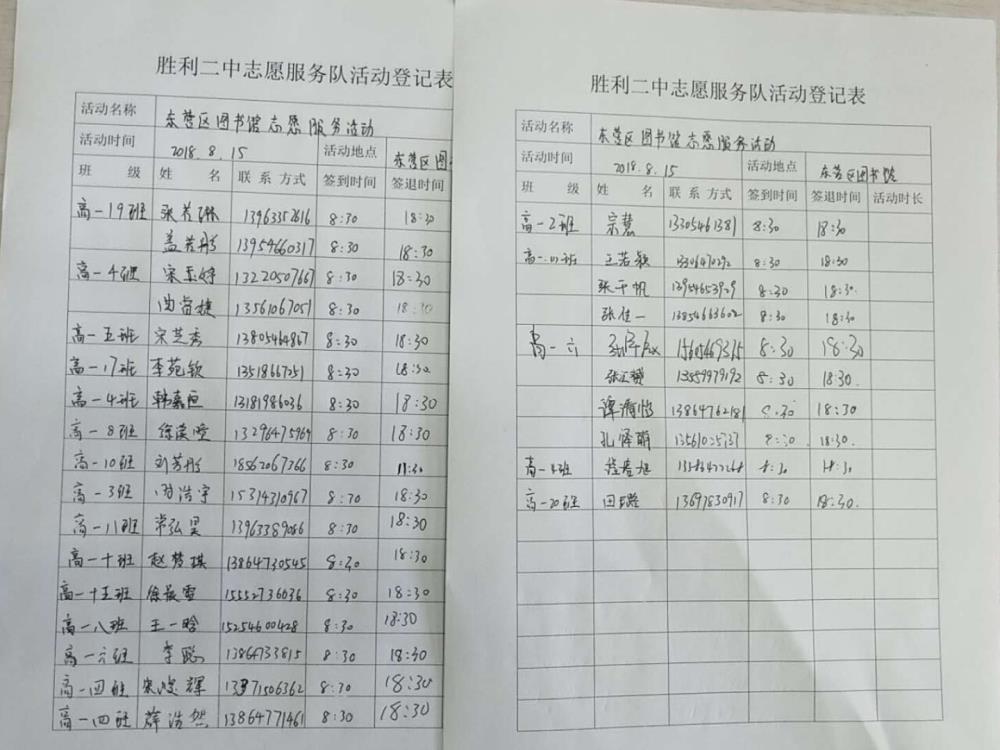 胜利二中志愿服务队活动登记表
活动名称 东营区图书馆志愿服务活动
活动时间 2018.8.15 活动地点 东营区图书
班 级 姓 名 联系方式 签到时间 签退时间
高一19班 8:30 18:30
盖芳彤 13954660317 8:30 18:30
高一4班 宋玉婷 13220507667 8:30 18:30
13561067051 8:30 18:30
高一五班 宋芝秀 13805464867 8:30 18:30
高一17班 李苑钦 13518667251 8:30 18:30
高一4班 韩嘉恒 13181986036 8:30 18:30
高一8班 8:30 18:30
高一10班 刘芳彤 18562067366 8:30
高一3班 浩宇 15314310967 18:30
高一八班 常弘昊 13963389086 8:30 18:30
高一十班 赵梦琪 13864730545 8:30 18:30
高一十五班 徐晨雪 15552736036 8:30 18:30
高一八班 王一晗 15254600428 8:30 18:30
高一六班 李 13864733815 8:30 18:30
高一四班 宋 辉 8:30 18:30
高一四班 薛浩然 13864771461 8:30 18:30
胜利二中志愿服务队活动登记表
活动名称 东营区图书馆志愿服务活动
活动时间 2018.8.15 活动地点 东营区图书馆
班 级 姓 名 联系方式 签到时间 签退时间 活动时长
高一2班 宗慧 13305461381 8:30 18:30
班 王若颖 8:30 18:30
张千帆 13954653929 8:30 18:30
张佳一 13854663602 8:30 18:30
高一六 15605469315 8:30 18:30
13559979192 8:30 18:30.
谭 13864762181 18:30
孔泽萌 8:30 18:30.
班 18:30
高一20班 田璐 13697830917 8:30 18:30.